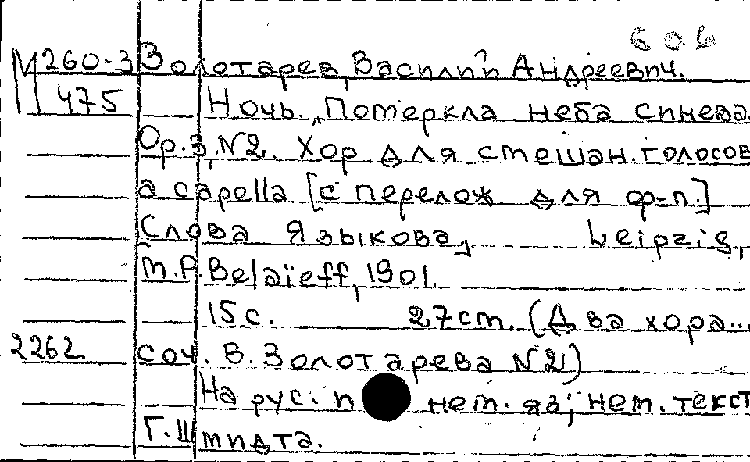 606
М 260-3 Золотарев, Василий Андреевич.
475 Ночь. „Померкла неба синева
Op.3, N2. Хор для смешан. голосов
a capella [с перелож для ф-п.]
Слова Языкова, Leipzig,
M.P. Belaïeff, 1901.
15 с. 27 см. (Два хора...
2262 соч. В. Золотарева N2)
На рус. и нем. яз; нем. текст
Г. Шмидта.